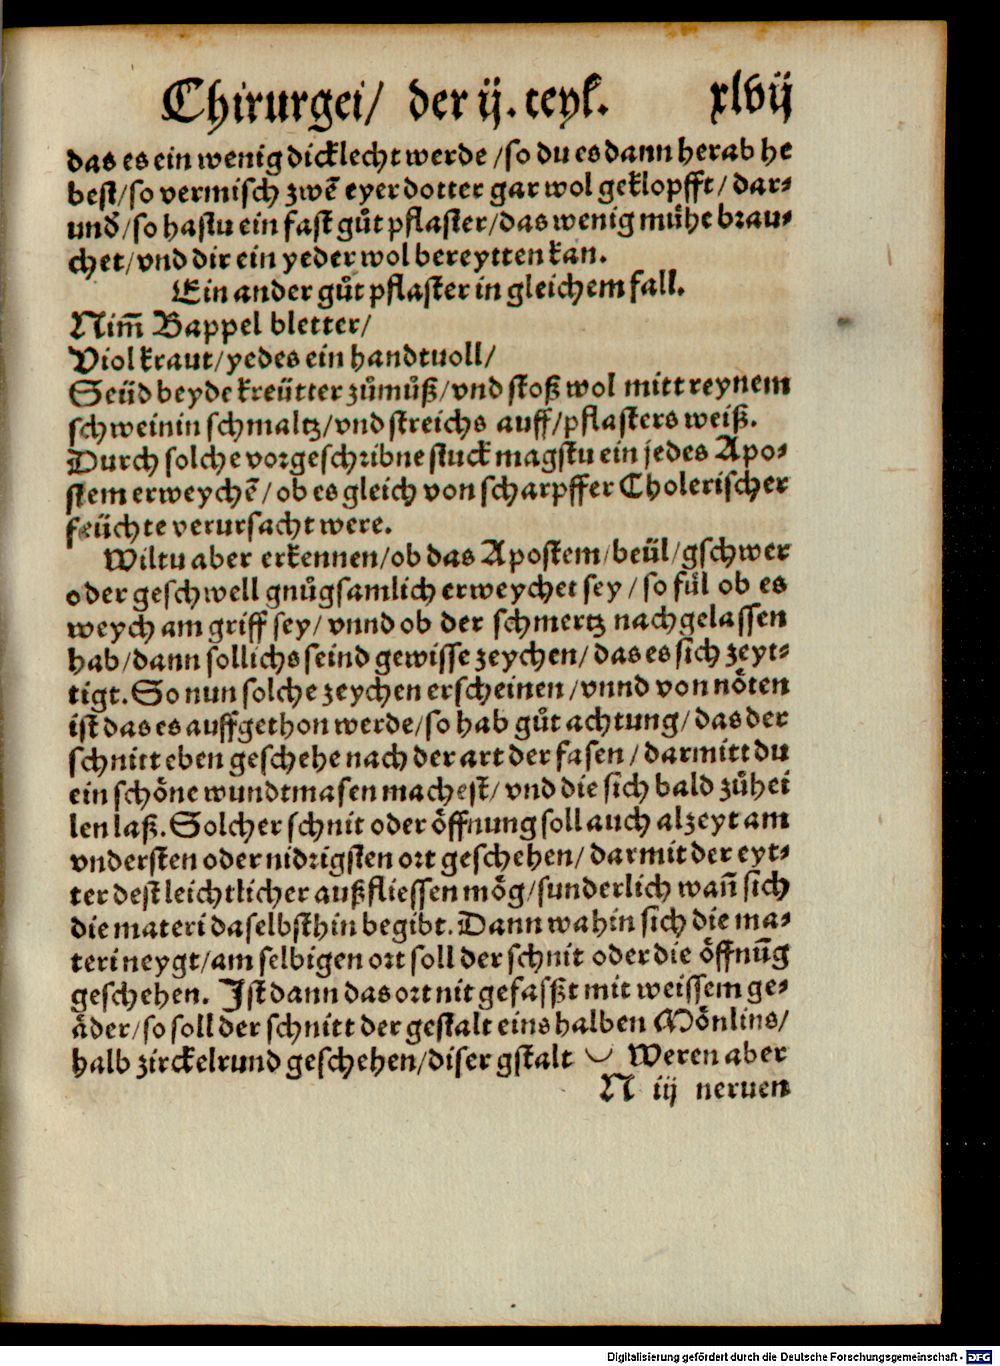 Chirurgei/ der ij. teyl. xlvij
das es ein wenig dicklecht werde /so du es dann herab he
best/so vermisch zwē eyerdotter gar wol geklopfft/ dar⸗
und̃/so hastu ein fast gůt pflaster/das wenig mühe brau⸗
chet/vnd dir ein yeder wol bereytten kan.
Ein ander gůt pflaster in gleichem fall.
Nim̃ Bappel bletter/
Viol kraut/yedes ein handtuoll/
Seüd beyde kreütter zůmůß/vnd stoß wol mitt reynem
schweinin schmaltz/vnd streichs auff/pflasters weiß.
Durch solche vorgeschribne stuck magstu ein jedes Apo⸗
stem erweychē/ob es gleich von scharpffer Cholerischer
feüchte verursacht were.
Wiltu aber erkennen/ob das Apostem/beül/gschwer
oder geschwell gnůgsamlich erweychet sey/so fül ob es
weych am griff sey/vnnd ob der schmertz nachgelassen
hab/dann sollichs seind gewisse zeychen/das es sich zeyt⸗
tigt. So nun solche zeychen erscheinen/vnnd von nöten
ist das es auffgethon werde/so hab gůt achtung/das der
schnitt eben geschehe nach der art der fasen/darmitt du
ein schöne wundtmasen machest/vnd die sich bald zůhei
len laß. Solcher schnit oder öffnung soll auch alzeyt am
vndersten oder nidrigsten ort geschehen/darmit der eyt⸗
ter dest leichtlicher außfliessen mög/sunderlich wañ sich
die materi daselbsthin begibt. Dann wahin sich die ma⸗
teri neygt/am selbigen ort soll der schnit oder die öffnūg
geschehen. Ist dann das ort nit gefasßt mit weissem ge⸗
äder/so soll der schnitt der gestalt eins halben Mönlins/
halb zirckelrund geschehen/diser gstalt ◡ Weren aber
N iij nerven
Digitalisierung gefördert durch die Deutsche Forschungsgemeinschaft - DFG